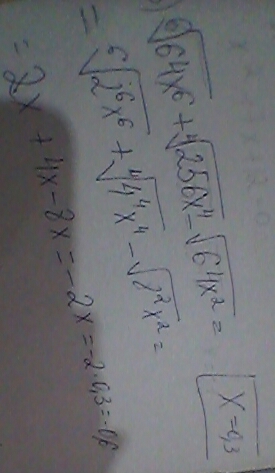 ⁶√64x⁶ + ⁴√256x⁴ - √64x² =
x = 0,3
= ⁶√2⁶x⁶ + ⁴√4⁴x⁴ - √8²x² =
= 2x + 4x - 8x = -2x = -2·0,3 = -0,6